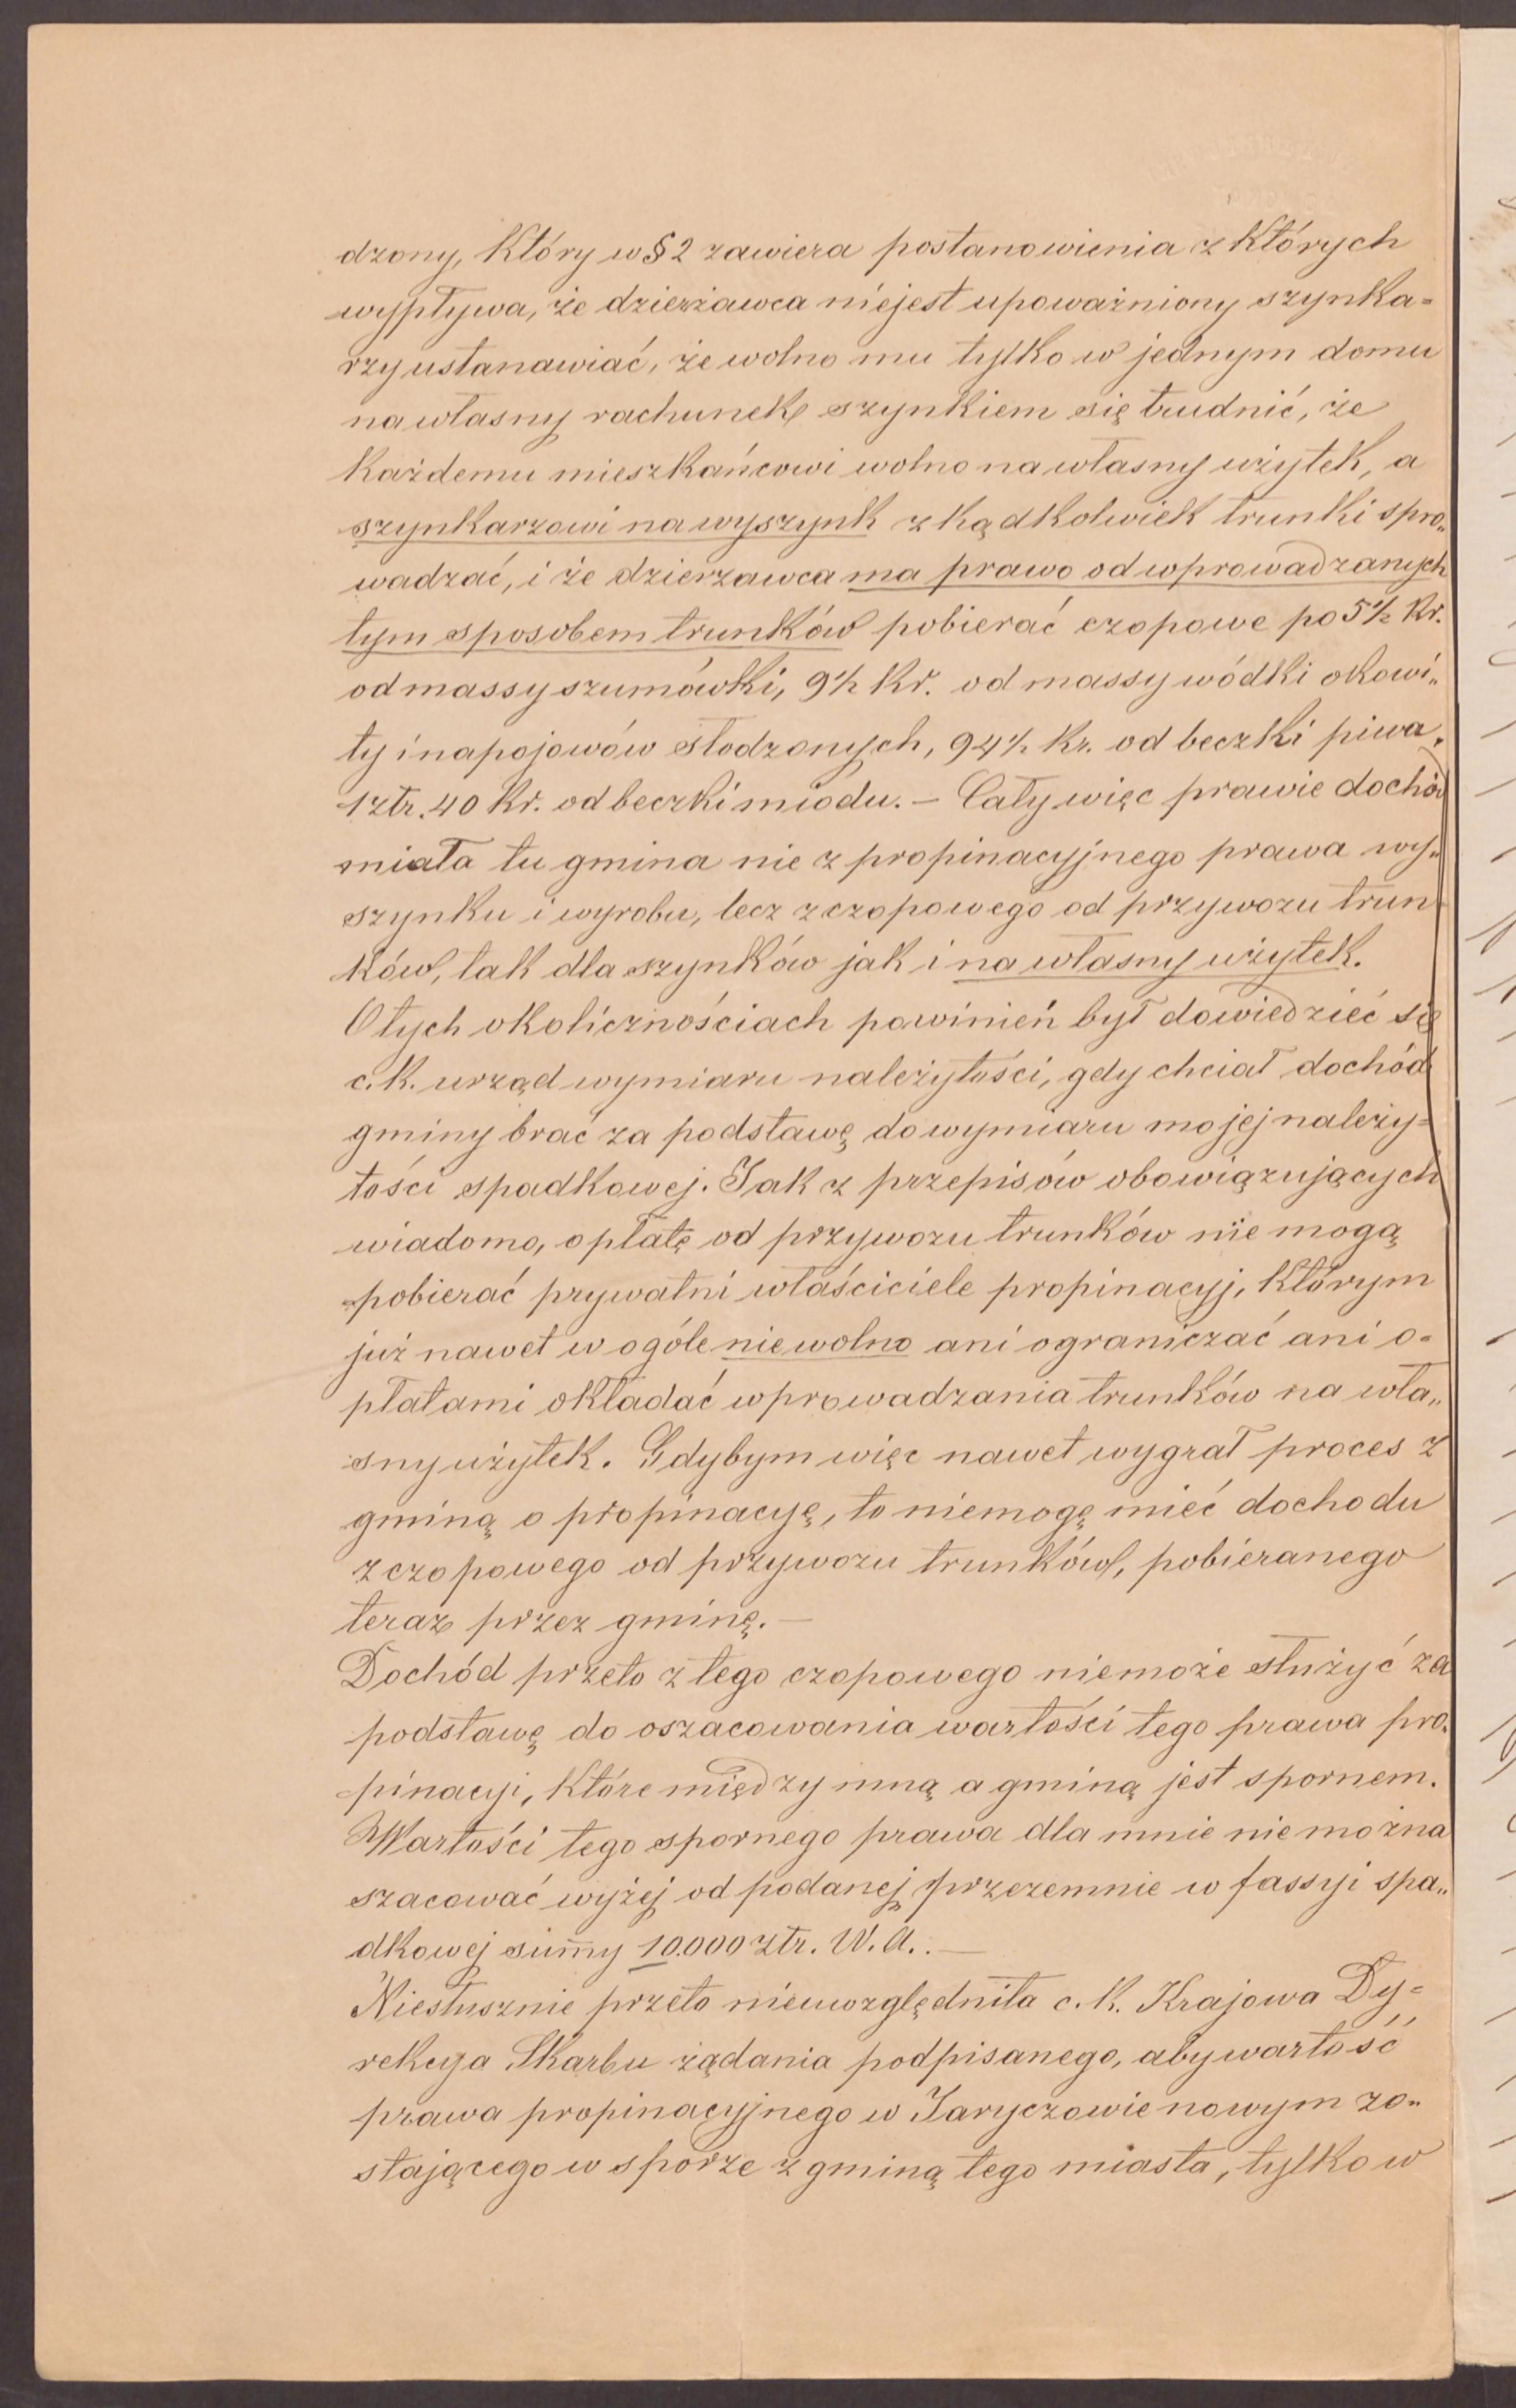 dzony, który w § 2 zawiera postanowienia z których
wypływa, że dzierżawca niejest upoważniony szynka=
rzy ustanawiać, że wolno mu tylko w jednym domu
na własny rachunek szynkiem się trudnić, że
każdemu mieszkańcowi wolno na własny użytek, a
szynkarzowi na wyszynk zkądkolwiek trunki spro„
wadzać, i że dzierzawca ma prawo od wprowadzanych
tym sposobem trunków pobierać czopowe po 5½ kr.
od massy szumówki, 9½ kr. od massy wódki okowi„
ty i napojowów słodzonych, 94½ kr. od beczki piwa,
1 złr. 40 kr. od beczki miodu. — Cały więc prawie dochód
miała tu gmina nie z propinacyjnego prawa wy„
szynku i wyrobu, lecz z czopowego od przywozu trun
ków, tak dla szynków jak i na własny użytek.
O tych okolicznościach powinień był dowiedzieć się
c. k. urząd wymiaru należytości, gdy chciał dochód
gminy brać za podstawę do wymiaru mojej należy=
tości spadkowej. Jak z przepisów obowiązujących
wiadomo, opłatę od przywozu trunków nie mogą
pobierać prywatni właściciele propinacyj, którym
już nawet w ogóle nie wolno ani ograniczać ani o=
płatami okładać wprowadzania trunków na wła„
sny użytek. Gdybym więc nawet wygrał proces z
gminą o propinacyę, to niemogę mieć dochodu
z czopowego od przywozu trunków, pobieranego
teraz przez gminę. —
Dochód przeto z tego czopowego niemoże służyć za
podstawę do oszacowania wartości tego prawa pro„
pinacyi, które między mną a gminą jest spornem.
Wartości tego spornego prawa dla mnie nie można
szacować wyżej od podanej przezemnie w fassyi spa„
dkowej sum̄y 10.000 złr. W. A. . —
Niesłusznie przeto nieuwzględniła c. k. Krajowa Dy=
rekcya Skarbu żądania podpisanego, aby wartość
prawa propinacyjnego w Jaryczowie nowym zo„
stającego w sporze z gminą tego miasta, tylko w